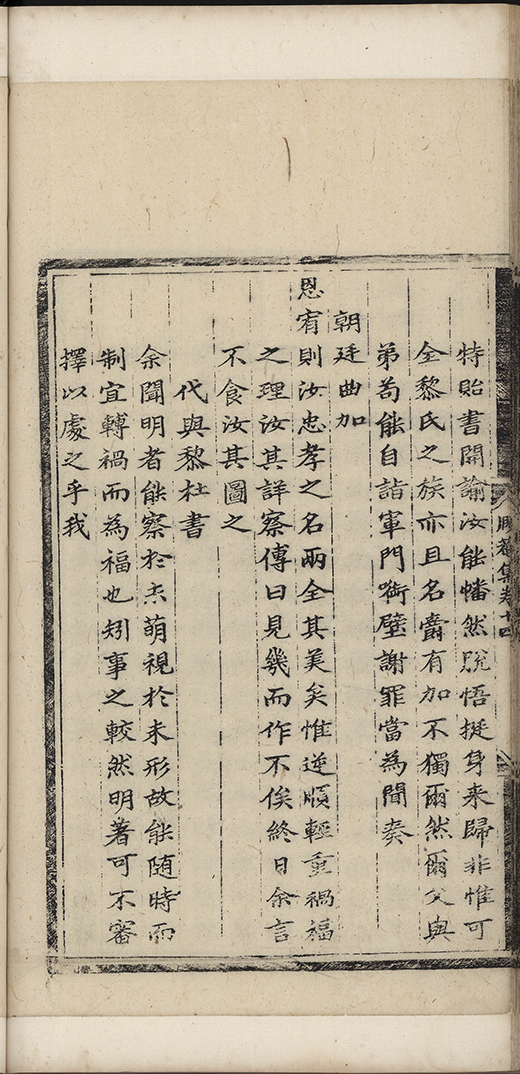 集卷十四
特貽書開諭汝能幡然脫悟挺身来歸非惟可
全黎氏之族亦且名爵有加不獨爾然爾父與
弟苟能自詣軍門銜璧謝罪當為聞奏
朝廷曲加
恩宥則汝忠孝之名兩全其美矣惟逆順輕重禍福
之理汝其詳察傳曰見幾而作不俟終日余言
不食汝其圖之
代與黎杜書
余聞明者能察於未萌視於未形故能随時而
制宜轉禍而為福也矧事之較然明著可不審
擇以處之乎我